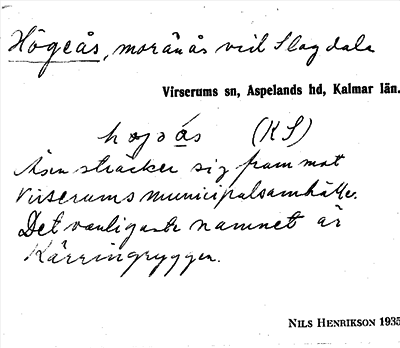 Högeås, moränås vid Slagdala
Virserums sn, Aspelands hd, Kalmar län.
högoås (KS)
Åsen sträcker sig fram mot
Virserums municipalsamhälle.
Det vanligaste namnet är
Kärringryggen.
NILS HENRIKSON 1935